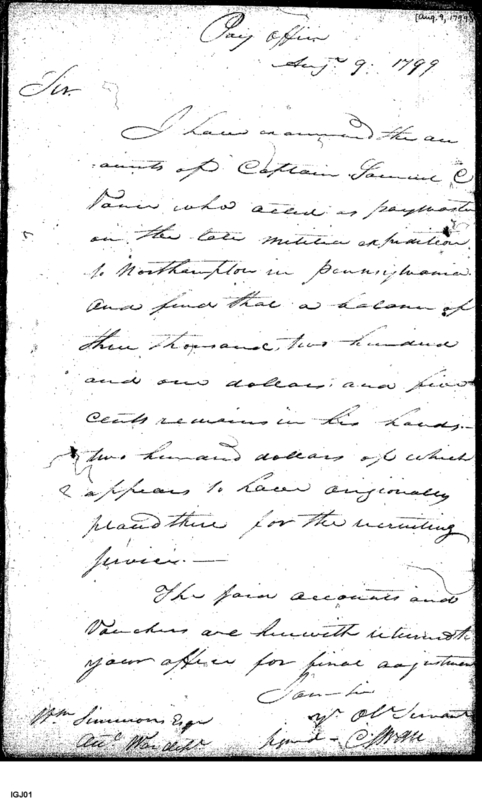 [Aug. 9, 1799]
Pay Office
Augt 9. 1799
Sir.
I have examined the ac
counts of Captain Samuel C
Vance who acted as paymaster
on the late militia expedition
to Northampton in Pennsylvania
and find that a balance of
three thousand, two hundred
and one dollars and five
cents remains in his hands.—
two hundred dollars of which
appears to have originally
placed there for the recruiting
service.—
The said accounts and
Vouchers are herewith returned to
your office for final adjustment
I am Sir
yr Obt Servant
Wm Simmons Esqr
signed - C Swan
Acct War Dept
IGJ01